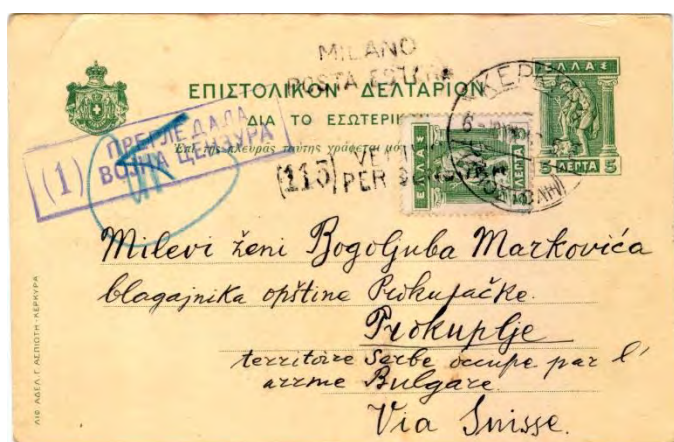 MILANO
POSTA ESTERA
ΕΠΙΣΤΟΛΙΚΟΝ ΔΕΛΤΑΡΙΟΝ
ΔΙΑ ΤΟ ΕΣΩΤΕΡΙΚ
Ἐπὶ τῆς πλευρᾶς ταύτης γράφεται μό
ΚΕΡΚ
ΕΛΛΑΣ
5 ΛΕΠΤΑ 5
(1) ПРЕГЛЕДАЛА
ВОЈНА ЦЕНЗУРА
(115)
PER
ΕΛΛΑΣ
ΛΕΠΤΑ
Milevi ženi Bogoljuba Markovića
blagajnika opštine Prokupačke.
Prokuplje
territoire Serbe occupe par l'
arrme Bulgare.
Via Suisse.
ΛΙΘ. ΑΔΕΛ. Γ. ΑΣΠΙΩΤΗ-ΚΕΡΚΥΡΑ